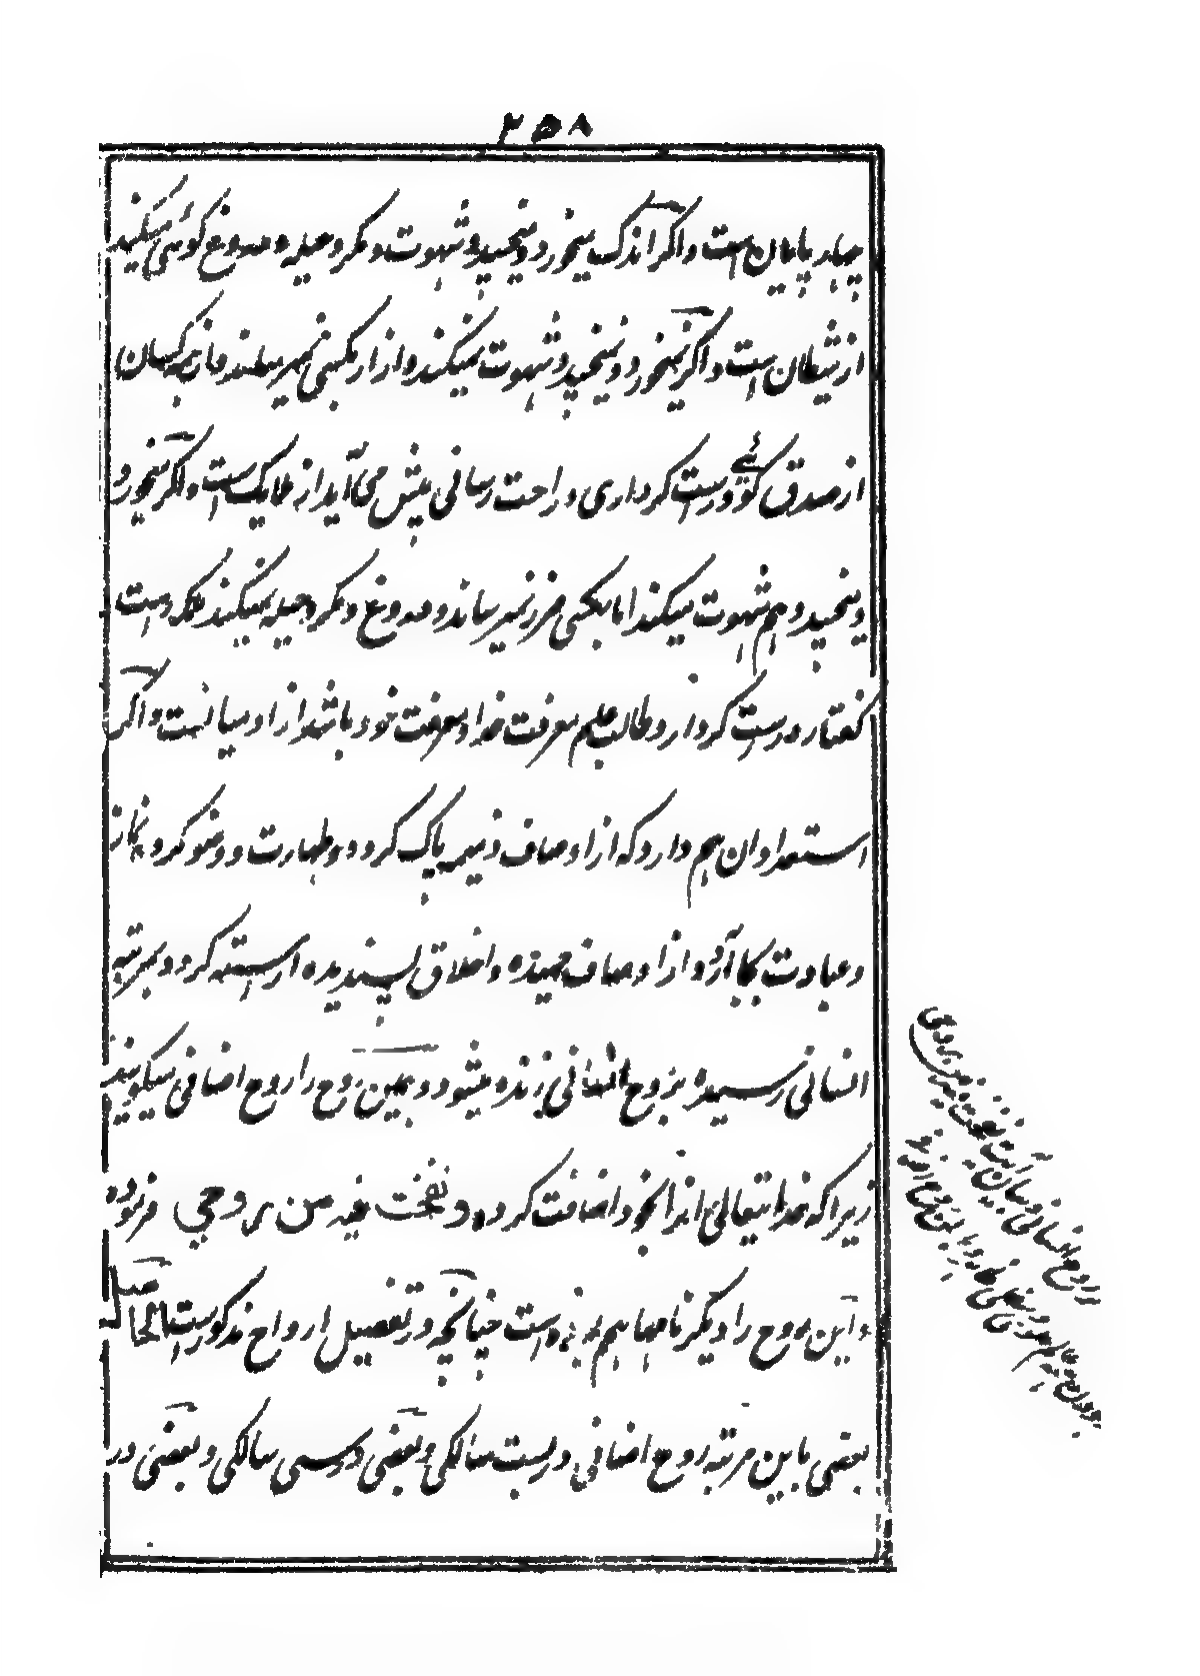 ۲۵۸
چهار پایان است و اگر اندک میخورد و میخسپد و شهوت و مکر و حیله و دروغ گوئی میکند
از شیطان است و اگر نمیخورد و نمیخسپد و شهوت نمیکند و ازار بکسی نمیرساند و از همه کسان
از صدق گوئے و درست کرداری و راحت رسانی پیش می آید از ملایک است و اگر میخورد
و میخسپد و هم شهوت میکند اما بکسی ضرر نمیرساند و دروغ و مکر و حیله نمیکند بلکه درست
گفتار و درست کردار و طالب علم معرفت خدا و معرفت خود باشد از ادمیانست و اگر
استعداد ان هم دارد که از اوصاف ذمیمه پاک گردد و طهارت و وضو کرد و نماز
و عبادت بجا آرد و از اوصاف حمیده و اخلاق پسندیده اراسته گردد بمرتبه
انسانی رسیده بروح انسانی زنده میشود و همین روح را روح اضافی میگویند
زیرا که خدا تیعالی انرا بخود اضافت کرده و نفخت فیه من روحی فرموده
و این روح را دیگر نامها هم است چنانچه در تفصیل ارواح مذکور است الحاصل
بعضی باین مرتبه روح اضافی در بیست سالگی و بعضی در سی سالگی و بعضی در
روح انسانی و بیان آیت نفخت فیه من روحی